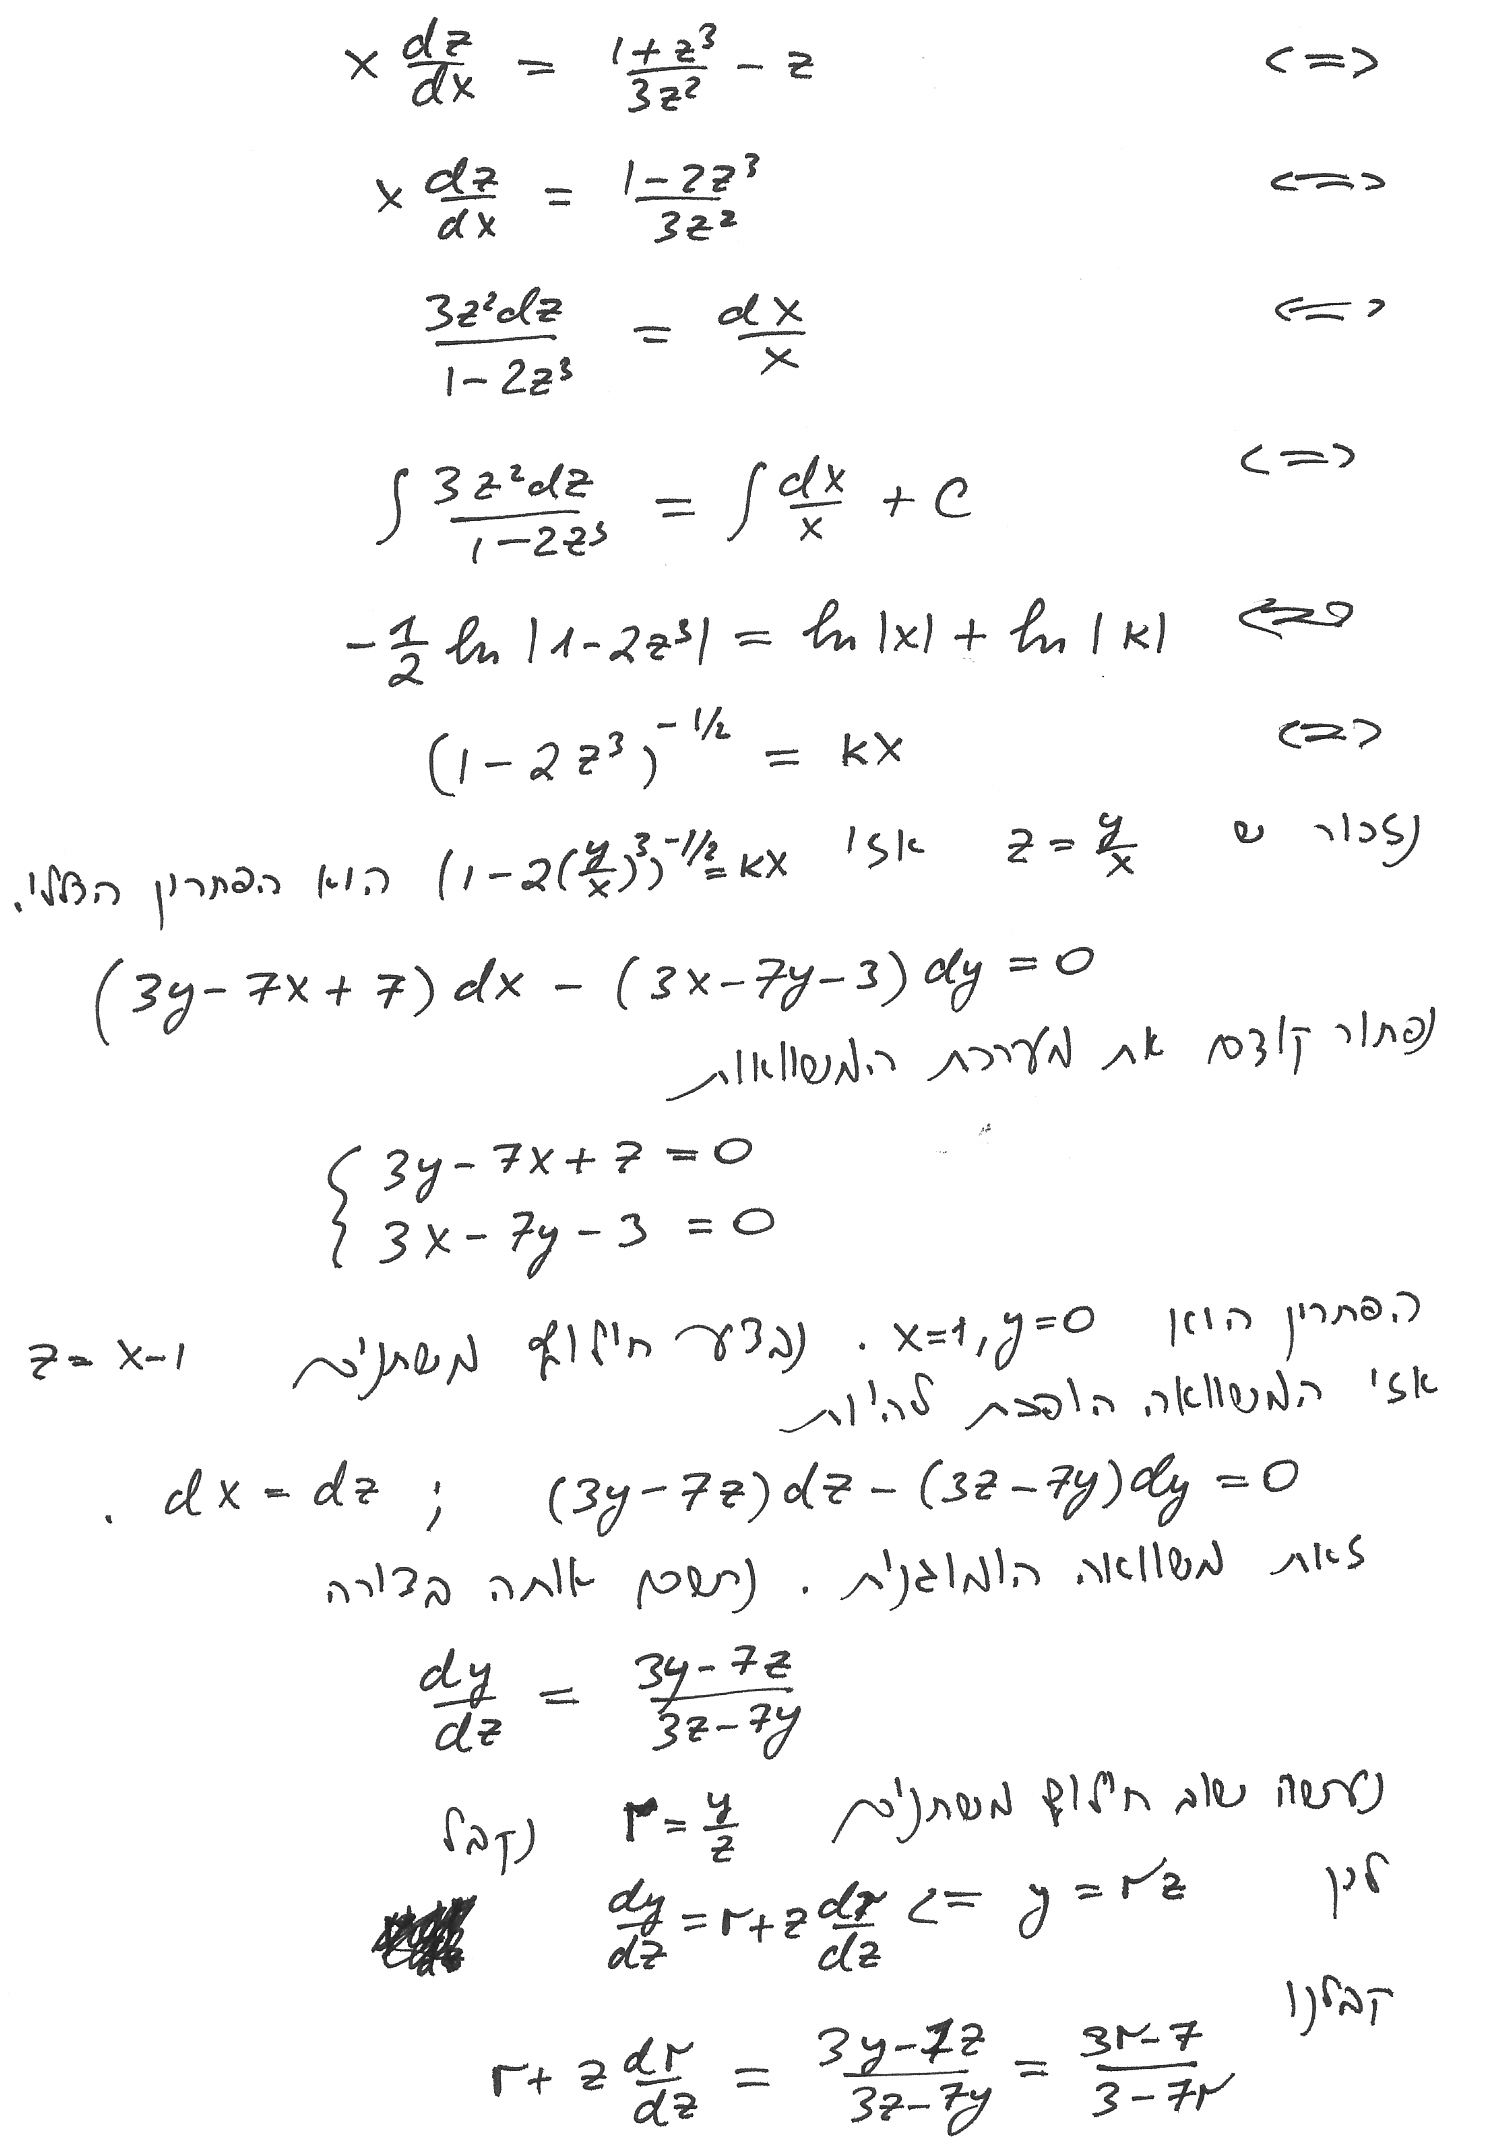 x dz/dx = (1+z³)/(3z²) - z <=>
x dz/dx = (1-2z³)/(3z²) <=>
3z²dz/(1-2z³) = dx/x <=>
∫ 3z²dz/(1-2z³) = ∫ dx/x + C <=>
-1/2 ln |1-2z³| = ln |x| + ln |k| <=>
(1-2z³)^(-1/2) = kx <=>
נזכור ש z = y/x אזי
(1-2(y/x)³)^(-1/2) = kx הוא הפתרון הכללי.
(3y-7x+7)dx - (3x-7y-3)dy = 0
נפתור קודם את מערכת המשוואות
{ 3y-7x+7 = 0
3x-7y-3 = 0
הפתרון הוא x=1, y=0. נבצע חילוף משתנים z = x-1
אזי המשוואה הופכת להיות
dx = dz ; (3y-7z)dz - (3z-7y)dy = 0 .
זאת משוואה הומוגנית. נרשם אותה בצורה
dy/dz = (3y-7z)/(3z-7y)
נעשה שוב חילוף משתנים r = y/z נקבל
לכן y = rz => dy/dz = r + z dr/dz
קבלנו
r + z dr/dz = (3y-7z)/(3z-7y) = (3r-7)/(3-7r)